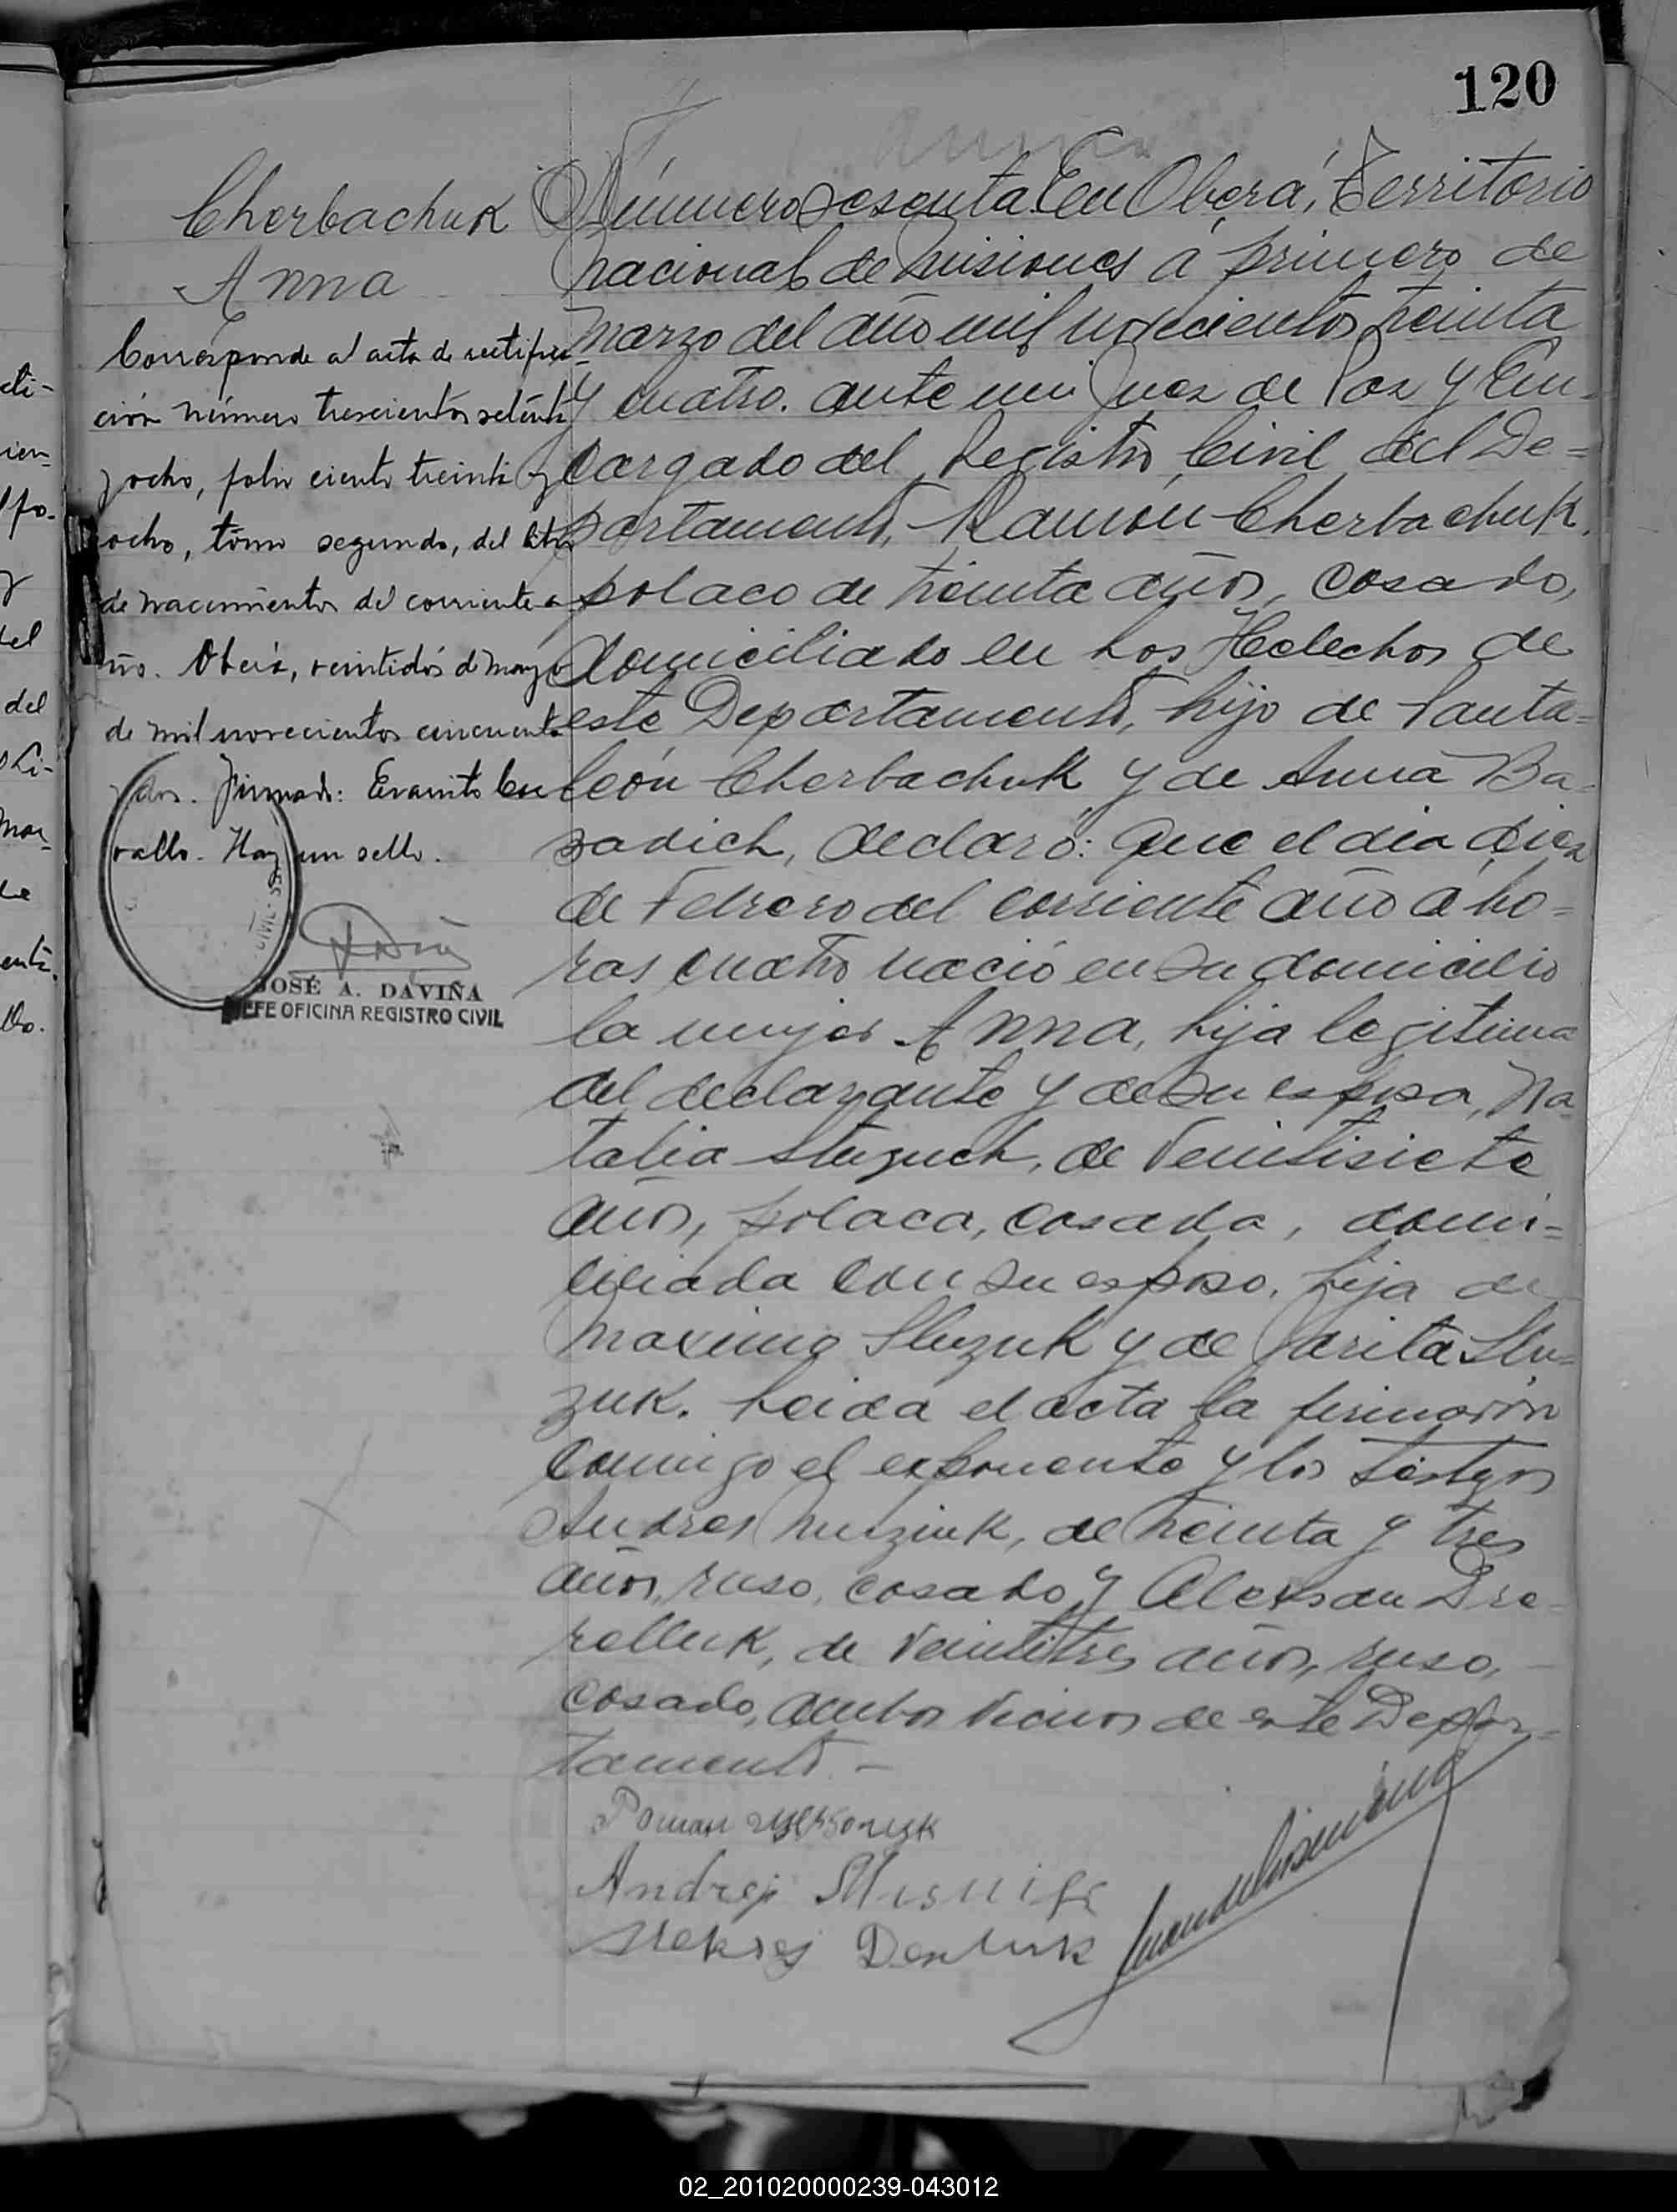 120
Cherbachuk
Anna
Corresponde al acta de rectifica-
ción número trescientos setenta
y ocho, folio ciento treinta y
ocho, tomo segundo, del libro
de nacimientos del corriente a-
ño. Oberá, veintidós de mayo
de mil novecientos cincuenta
y dos. Firmado: Evaristo Ca
vallo. Hay un sello.
JOSÉ A. DAVIÑA
JEFE OFICINA REGISTRO CIVIL
Número sesenta. En Oberá, Territorio
Nacional de Misiones á primero de
Marzo del año mil novecientos treinta
y cuatro. ante mi Juez de Paz y En-
cargado del Registro Civil del De=
partamento, Ramón Cherbachuk,
polaco de treinta años, casado,
domiciliado en Los Helechos de
este Departamento, hijo de Panta=
león Cherbachuk y de Anna Ba-
sadich, declaró: Que el día diez
de Febrero del corriente año a ho=
ras cuatro nació en su domicilio
la mujer Anna, hija legitima
del declarante y de su esposa, Na-
talia Sluzuch, de Veintisiete
años, polaca, casada, domi-
ciliada con su esposo, hija de
Maximo Sluzuk y de Jarita Slu=
zuk. Leida el acta la firmaron
conmigo el exponente y los testigos
Andres Muzuik, de treinta y tres
años, ruso, casado y Alexsan Dre-
relluk, de veintitres años, ruso,
casado, ambos vecinos de este Depar=
tamento. -
Andrej
02_201020000239-043012